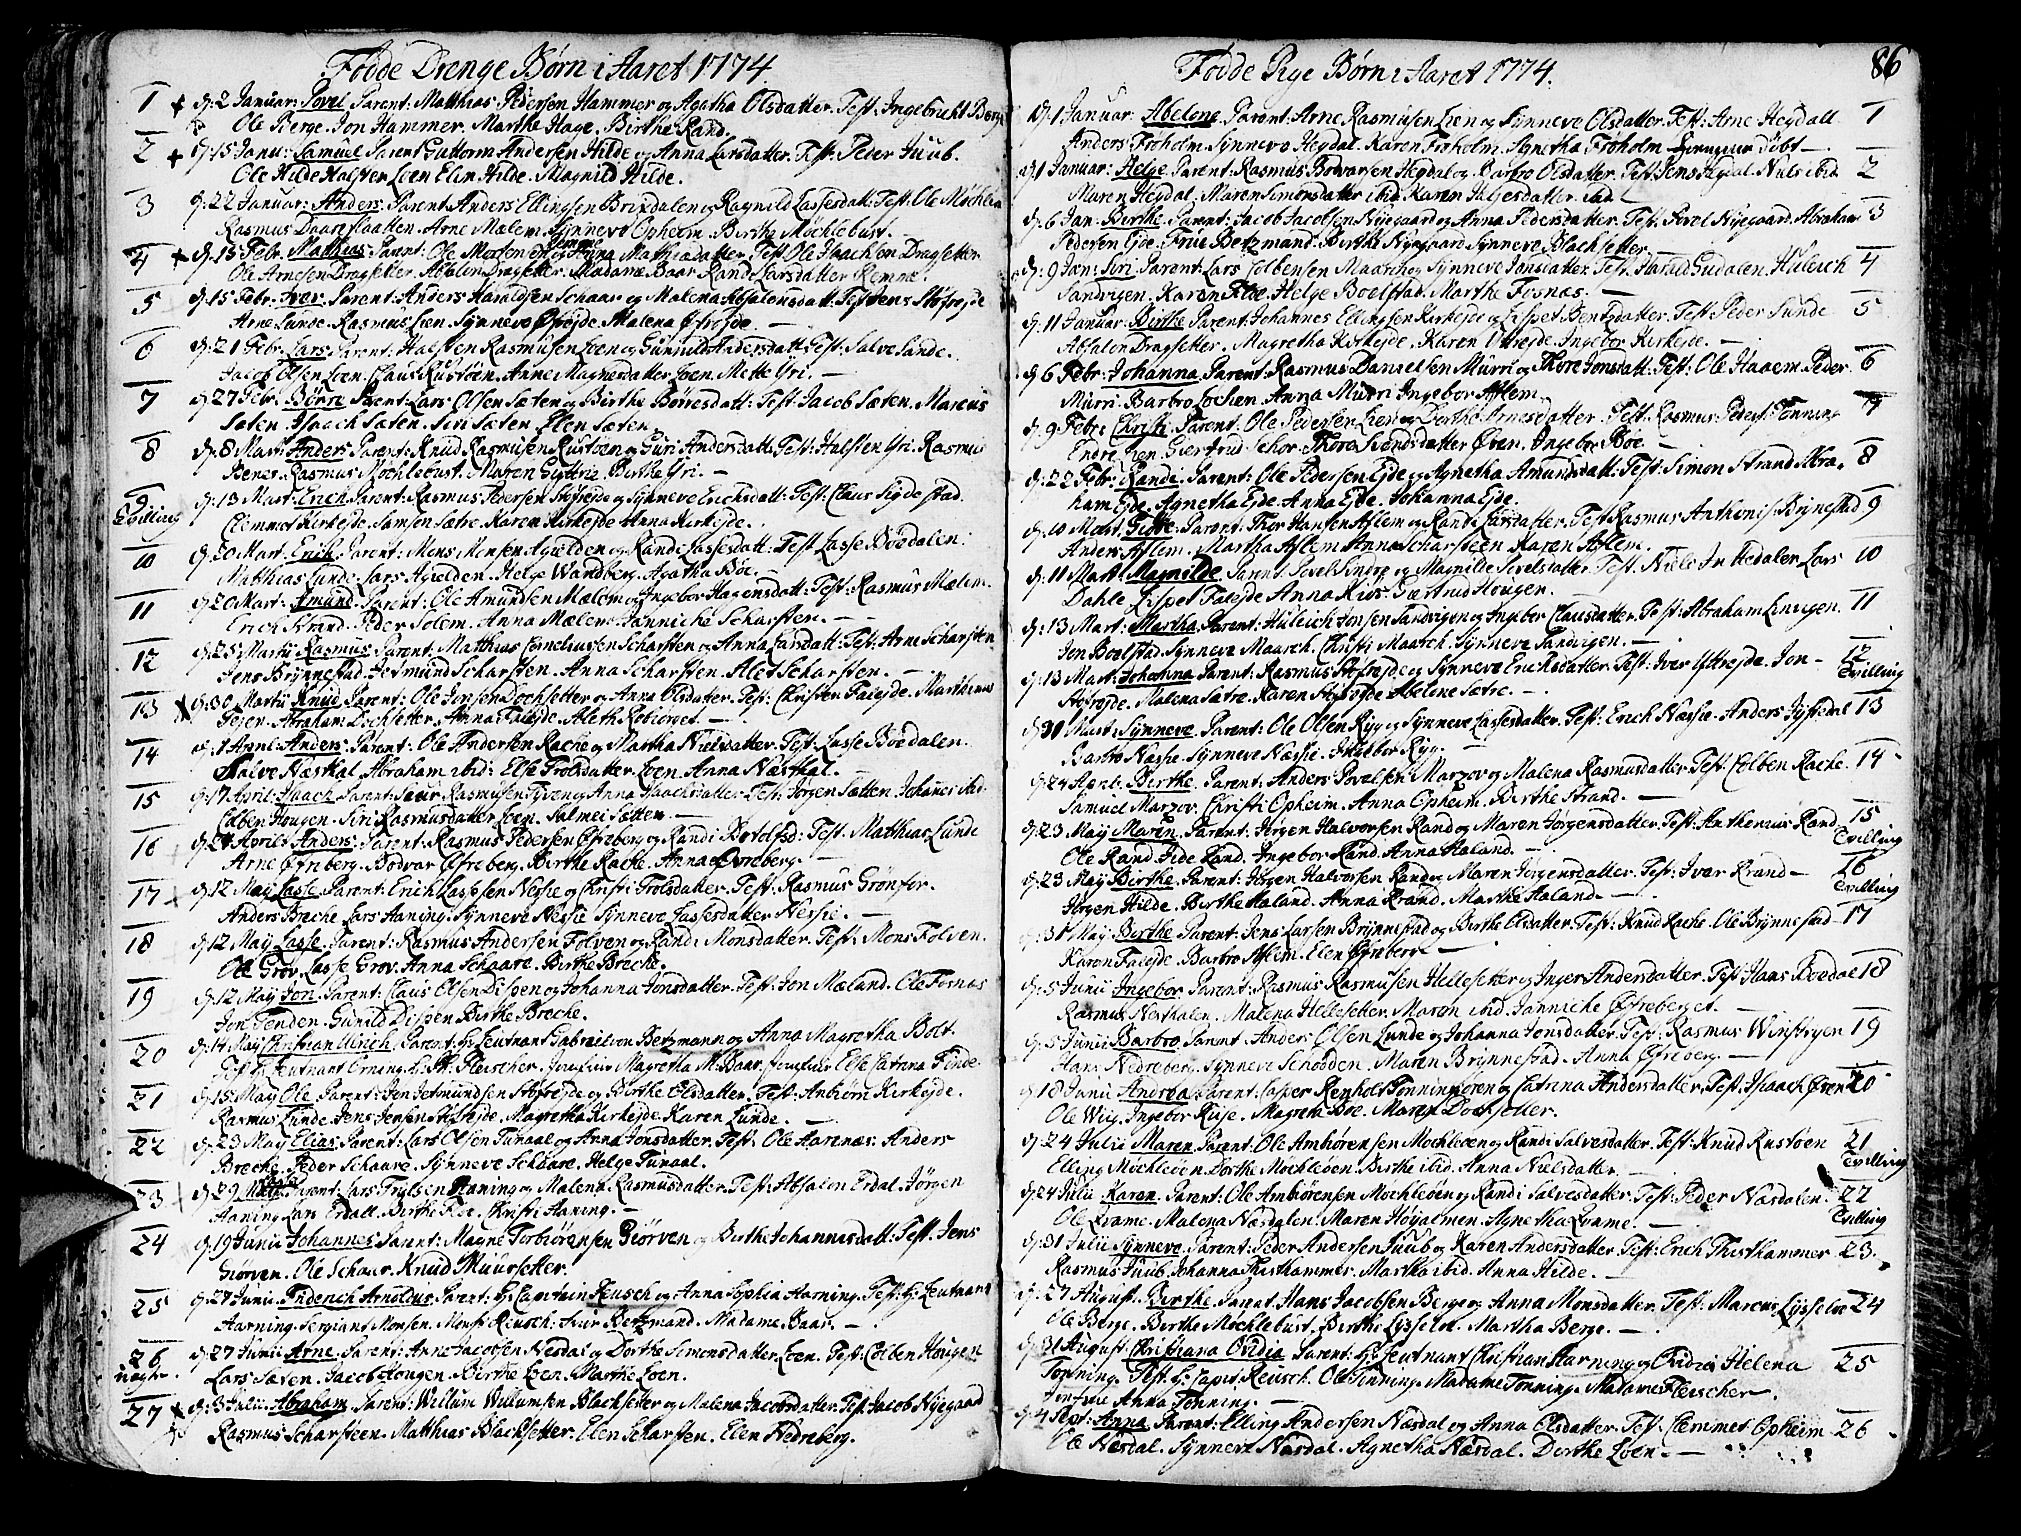 Fødde Drenge Børn i Aaret 1774.
1 + d: 2 Januar: Povel Parent: Matthias Pedersen Hammer og Agatha Olsdatter. Test: Ingebricht Berge
Ole Berge. Jon Hammer. Marthe Hage. Birthe Rand.
2 + d: 15 Janu: Samuel Parent Guttorm Andersen Hilde og Anna Larsdatter. Test: Peder Juub.
Ole Hilde Halsten Loen Elin Hilde. Magnild Hilde.
3 d: 22 Januar: Anders. Parent Anders Ellingsen Brixdalen og Ragnild Lassesdatt: Test: Ole Møchleb
Rasmus Arne Mælem. Synneve Opheim. Birthe Møchlebust.
4 + d: 13 Febr. Matthias Parent: Ole Mortensen Remme og Anna Mathiasdatter. Test Ole Isachsen Dragsetter
Ole Arnesen Dragsetter. Absalon Dragsetter. Madame Baar Rand Larsdatter Remme.
5 d: 15 Febr. Iver. Parent: Anders Haraldsen Schaar og Malena Absalonsdatt: Test Jens Støfrejde
Arne Lunde. Rasmus Loen. Synneve Øfrejde. Malena Øfrejde. —
6 d: 21 Febr. Lars. Parent: Halsten Rasmusen Loen og Gunnild Andersdatt: Test: Salve Sande.
Jacob Olsen Loen. Claus Rustøen. Anne Magnesdatter Loen. Mette Yri. —
7 d: 27 Febr: Børre Parent: Lars Olsen Sæten og Birthe Børresdatt: Test: Jacob Sæten. Marcus
Sæten. Isaach Sæten. Siri Sæten Elen Sæten.
8 d: 8 Mart: Anders Parent: Knud Rasmusen Rustøen og Guri Andersdatt: Test: Halsten Yri. Rasmus
Bener. Rasmus Møchlebust. Maren Birthe Yri. —
9 Tvilling d: 13 Mart: Erich Parent: Rasmus Pedersen Støfrejde og Synneve Erichsdatt: Test: Claus Sigdestad.
Clemmet Kirkejde. Samsen Sætre. Karen Kirkejde Anna Kirkejde.
10 d: 20 Mart: Erich. Parent: Mons Monsen Agielden og Rande Lassesdatt: Test Lasse Bødalen.
Matthias Lunde. Lars Agielden. Helge Wandberg. Agatha Bøe. —
11 d: 20 Mart: Amund. Parent: Ole Amundsen Mælem og Ingebor Hagensdatt: Test: Rasmus Mælem.
Erich Strand. Peder Solem. Anna Mælem. Janniche Scharsten. —
12 d: 25 Martii Rasmus Parent: Matthias Corneliusen Scharsten og Anna Larsdatt: Test: Arne Scharsten
Jens Brynnestad. Jetmund Scharsten. Anna Scharsten. Alet Scharsten. —
13 d: 30 Martii Knud Parent: Ole Jonsen Dochsetter og Anna Olsdatter. Test: Christen Faleide. Marthinus
Abraham Dochsetter. Anna Faleide. Aleth —
14 d: 1 April: Anders. Parent: Ole Andersen Rache og Martha Nielsdatter. Test: Lasse Bødalen.
Salve Næsthal. Abraham ibid: Else Trolsdatter Loen. Anna Næsthal.
15 d: 17 April: Isaach Parent: Rasmusen og Anna Isaachsdatter. Test: Jørgen Sætten. Johanes ibid.
Colben Hougen. Siri Rasmusdatter Loen. Salmei Sætten. —
16 d: 24 April: Anders. Parent: Rasmus Pedersen Øfreberg og Randi Botolfsd: Test: Matthias Lunde
Arne Øfreberg. Bodvar Øfreberg. Birthe Rache. Anna Øvreberg. —
17 d: 12 May Lasse. Parent: Erich Lassesen Nesse og Christi Trolsdatter. Test: Rasmus Grønfor.
Anders Breche Lars Haning. Synneve Nessie Synneve Lassesdatter Nessie. —
18 d: 12 May Lasse. Parent: Rasmus Andersen Folven og Randi Monsdatter. Test: Mons Folven.
Ole Grov. Lasse Grov. Anna Schaare. Birthe Breche.
19 d: 12 May Jon. Parent: Claus Olsen Dispen og Johanna Jonsdatter. Test: Jon Mæland. Ole Fosnæs
Jon Tenden. Gunild Dispen Birthe Breche.
20 d: 14 May Christian Ulrich. Parent: hr Leutnant Gabrail von Betzmann og Anna Magretha Bolt.
Test h: Leutnant Erning. h: Fleischer. Jomfrue Magretha M. Baar. Jomfrue Else Catrina Finde
21 d: 15 May Ole Parent: Jon Jetmundsen Støfrejde og Birthe Olsdatter. Test: Anbiørn Kirkejde.
Rasmus Lunde. Jens Jensen Støfrejde. Magretha Kirkejde Karen Lunde. —
22 d: 23 May Elias. Parent: Lars Olsen Tunaal og Anna Jonsdatter. Test: Ole Aarenæs. Anders
Breche. Peder Schaare. Synneve Schaare. Helge Tunaal.
23 d: 29 May Parent: Lars Trulsen Haning og Malena Rasmusdatter. Test: Absalon Erdal. Jørgen
Haning. Lars Erdall. Birthe Eide. Christi Haning. —
24 d: 19 Junii Johannes. Parent: Magne Torbiørensen Giørven og Birthe Johannisdatt: Test: Jens
Giørven. Ole Schaar. Knud Muursetter.
25 d: 27 Junii Friderich Arnoldus. Parent: h: Capitain Reusch og Anna Sophia Harning. Test: h: Leutnant
Aarning. Sergiant Monsen. Mons: Reusch. frue Betzmand. Madame Baar. —
26 uægte. d: 27 Junii Arne. Parent: Arne Jacobsen Nesdal og Dorthe Simonsdatter Loen. Test: Colben Hougen
Lars Sæten. Jacob Hougen. Birthe Loen. Marthe Loen.
27 d: 3 Julii Abraham. Parent: Willum Willumsen Blachsetter og Malena Jacobsdatter. Test: Jacob Nyegaard
Rasmus Scharsteen. Matthias Blachsetter. Elen Scharsten. Elen Nedreberg.
Fødde Pige Børn i Aaret 1774.
86
d: 1 Januar: Abelone Parent: Arne Rasmusen Loen og Synneve Olsdatter. Test: Arne Hegdall 1
Anders Frøholm. Synneve Hegdal. Karen Frøholm. Agnetha Frøholm. døbt —
d: 1 Januar: Helge Parent: Rasmus Bodvarsen Hegdal og Barbro Olsdatter. Test: Jens Hegdal. Nils ibid 2
Maren Hegdal. Maren Simonsdatter ibid. Karen Heljesdatter ibid. —
d: 6 Jan: Birthe. Parent: Jacob Jacobsen Nyegaard og Anna Pedersdatter. Test: Povel Nyegaard. Abraham 3
Pedersen Ejde. Frue Betzmand. Birthe Nyegaard Synneve Blachsetter. —
d: 9 Jan: Siri Parent: Lars Colbensen Maarch og Synneve Jonsdatter. Test. Harald Gudalen. Hulrich 4
Sandvigen. Karen Floe. Helge Boelstad. Marthe Fosnæs. —
d: 11 Januar: Birthe Parent: Johannes Ellingsen Kirkejde og Lispet Bentsdatter. Test: Peder Sunde 5
Absalon Dragsetter. Magretha Kirkejde. Karen Øfrejde. Ingebor Kirkejde. —
d: 6 Febr: Johanna. Parent: Rasmus Danielsen Murri og Thore Jonsdatt: Test: Ole Haaem. Peder 6
Murri. Barbro Lochen. Anna Murri Ingebor Aflem.
d: 9 Febr: Christi Parent. Ole Pedersen Loen og Dorthe Arnesdatter. Test: Rasmus Peders: Tonning 7
Endre Loen. Giertrud Thore Øven. Ingebor Boe —
d: 22 Febr: Randi Parent: Ole Pedersen Ejde og Agnetha Amundsdatt: Test: Simon Strand. Abra- 8
ham Ejde. Agnetha Ejde. Anna Ejde. Johanna Ejde.
d: 10 Mart: Giøre Parent: Thor Hansen Aflem og Randi Larsdatter. Test Rasmus Anthonis: Brynestad 9
Anders Aflem. Martha Aflem Anna Scharsteen Karen Aflem.
d: 11 Mart: Magnilde. Parent: Povel Sindre og Magnilde Povelsdatter. Test: Niels Hedalen. Lars 10
Dahle. Lispet Faleide. Anna Giertrud Hougen.
d: 13 Mart: Martha Parent: Hulrich Jonsen Sandvigen og Ingebor Clausdatter. Test: Abraham Lenvigen. 11
Jon Boelstad. Synneve Maarch. Christi Maarch. Synneve Sandvigen. —
d: 13 Mart: Johanna Parent: Rasmus Støfrejde og Synneve Erichsdatter. Test: Iver Yttrejde. Jon- 12
Støfrejde. Malena Sætre. Karen Støfrejde Abelene Sætre. — Tvilling
d: 31 Mart: Synneve. Parent: Ole Olsen Ryg og Synneve Lassesdatter. Test: Erich Næssie. Anders 13
Barbro Næssie. Synneve Næssie. Ingebor Ryg. —
d: 24 April: Birthe. Parent: Anders Povelsen Marzov og Malena Rasmusdatter. Test: Colben Rache 14
Samuel Marzov. Christi Opheim. Anna Opheim. Birthe Strand. —
d: 23 May Maren. Parent: Jørgen Halvorsen Rand og Maren Jørgensdatter. Test: Anthonius Rand 15
Ole Rand. Rand. Ingebor Rand. Anna Haland. — Tvilling
d: 23 May Birthe. Parent: Jørgen Halvorsen Rand og Maren Jørgensdatter. Test: Ivar Rand — 16 Tvilling
Jørgen Hilde. Birthe Haland. Anna Rand. Marthe Haland. —
d: 31 May Berthe Parent: Jens Larsen Brynnestad og Birthe Olsdatter. Test: Knud Rache. Ole Brynnestad 17
Karen Faleide. Barbro Aflem. Elen Øfreberg —
d: 5 Junii Ingebor. Parent: Rasmus Rasmusen Hellesetter og Inger Andersdatter. Test: Haas Bødal 18
Rasmus Nesthalen. Malena Hellesetter. Maron ibid. Janniche Øfreberget. —
d: 5 Junii Barbro Parent: Anders Olsen Lunde og Johanna Jonsdatter. Test: Rasmus 19
Hans Nedreberg. Synneve Schodden. Maren Brynnestad. Anna Øfreberg. —
d: 18 Junii Andrea Parent: Casper Renholt Tonningøren og Catrina Andersdatter. Test: Isaach Øren 20
Ole Wiig. Ingebor Magreta Boe. Maren Dochsetter.
d: 24 Julii Maren. Parent: Ole Ambiørensen Mochleøen og Randi Salvesdatter. Test: Knud Rustøen 21
Elling Møchleøen. Dorthe Møchleøen. Birthe ibid. Anna Nielsdatter. — Tvilling
d: 24 Julii Karen. Parent: Ole Ambiørensen Møchleøen og Randi Salvesdatter. Test: Peder Næsdalen. 22
Ole Qvame. Malena Næsdalen. Maren Høyalmen. Agnetha Qvame. — Tvilling
d: 31 Julii Synneve. Parent: Peder Andersen Juub og Karen Andersdatter. Test: Erich Thisthammer 23.
Rasmus Juub. Johanna Thisthammer. Martha ibid. Anna Hilde. —
d: 27 August. Birthe. Parent Hans Jacobsen Berge og Anna Monsdatter. Test: Marcus Lysseloe 24
Ole Berge. Birthe Mochlebust. Birthe Lysseloe. Martha Berge. —
d: 31 August: Christiana Ovidia Parent: h: Leutnant Christian Harning og Ovidia Helena 25
Tonning. Test. h: Capit: Reusch. Ole Tonning. Madame Tonning. Madame Fleischer.
Jomfrue Anna Tonning. —
d: 4 Sept: Anna Parent: Elling Andersen Næsdal og Anna Olsdatter. Test: Clemmet Opheim 26
Ole Næsdal. Synneve Næsdal. Agnetha Næsdal. Dorthe Loen. —